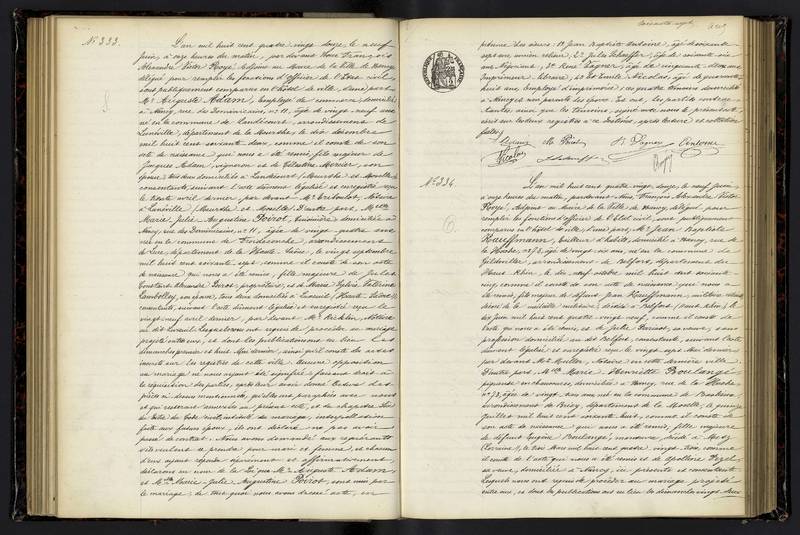 N° 333.
L'an mil huit cent quatre vingt douze, le neuf
juin, à onze heures du matin, par devant Nous François
Alexandre Victor Adjoint au Maire de la Ville de Nancy
délégué pour remplir les fonctions d'officier de l'État civil
sont publiquement comparus en l'hôtel de ville, d'une part
Mr Auguste Adam, employé de commerce, domicilié
à Nancy, rue des Dominicains, n° 11, âgé de vingt-neuf ans
né en la commune de Landécourt, arrondissement de
Lunéville, département de la Meurthe, le dix décembre
mil huit cent soixante deux, comme il conste de son
acte de naissance qui nous a été remis, fils majeur de
Jacques Adam, vigneron et de Célestine Mercier, son
épouse, tous deux domiciliés à Landécourt (Meurthe et Moselle)
consentants, suivant l'acte dûment légalisé et enregistré reçu
le trente avril dernier, par devant Me Notaire
à Lunéville (Meurthe et Moselle). D'autre part, Melle
Marie Julie Augustine Poirot, cuisinière, domiciliée à
Nancy, rue des Dominicains, n° 11, âgée de vingt quatre ans
née en la commune de arrondissement
de Lure, département de la Haute-Saône, le vingt septembre
mil huit cent soixante sept, comme il conste de son acte
de naissance qui nous a été remis, fille majeure de Jules
Constant Alexandre Poirot, propriétaire, et de Marie Sylvie
son épouse, tous deux domiciliés à Luxeuil (Haute-Saône),
consentants, suivant l'acte dûment légalisé et enregistré reçu le
vingt-neuf avril dernier, par devant Me Notaire
au dit Luxeuil. Lesquels nous ont requis de procéder au mariage
projeté entre eux, et dont les publications ont eu lieu les
dimanches premier et huit Mai dernier, ainsi qu'il conste des actes
inscrits sur les registres de cette ville. Aucune opposition
au mariage ne nous ayant été signifiée, faisant droit à
la réquisition des parties, après leur avoir donné lecture des
pièces ci-dessus mentionnées, qu'elles ont paraphées avec nous
et qui resteront annexées au présent acte, et du chapitre Six
du titre du Code civil intitulé du mariage, interpellation
faite aux futurs époux, ils ont déclaré ne pas avoir
passé de contrat. Nous avons demandé aux requérants
s'ils veulent se prendre pour mari et femme, et chacun
d'eux ayant répondu séparément et affirmativement,
déclarons au nom de la Loi que Mr Auguste Adam
et Melle Marie Julie Augustine Poirot, sont unis par
le mariage; de tout quoi nous avons dressé acte, en
présence des sieurs: 1° Jean Baptiste Antoine, âgé de soixante
sept ans, ancien relieur, 2° Jules Schaeffer, âgé de soixante six
ans, négociant, 3° René Vagner, âgé de cinquante deux ans
Imprimeur libraire, 4° et Émile Nicolas, âgé de quarante
huit ans, employé d'imprimerie; ces quatre témoins domiciliés
à Nancy et non parents des époux. Et ont, les parties contrac-
tantes ainsi que les témoins, signé avec nous le présent acte,
écrit sur les deux registres à ce destinés, après lecture et collation
faites
A. Adam J. Poirot R. Vagner Antoine
Nicolas J. Schaeffer
N° 334.
L'an mil huit cent quatre vingt douze, le neuf juin,
à onze heures du matin, par devant Nous François Alexandre Victor
Adjoint au Maire de la Ville de Nancy, délégué pour
remplir les fonctions d'officier de l'État civil, sont publiquement
comparus en l'hôtel de ville, d'une part, Mr Jean Baptiste
Kauffmann, domicilié à Nancy, rue de
la Hache, n° 73, âgé de vingt six ans, né en la commune de
arrondissement de Belfort, département du
Haut-Rhin, le dix-sept octobre mil huit cent soixante-
cinq, comme il conste de son acte de naissance qui nous a
été remis, fils majeur de Kauffmann,
décédé à Belfort (Haut-Rhin) le
dix juin mil huit cent quatre vingt neuf, comme il conste de
l'acte qui nous a été remis, et de Julie sa veuve, sans
profession, domiciliée au dit Belfort, consentante, suivant l'acte
dûment légalisé et enregistré reçu le vingt sept Mai dernier
par devant Me Notaire en cette dernière ville.
D'autre part, Melle Marie Henriette Boulangé,
piqueuse en chaussures, domiciliée à Nancy, rue de la Hache
n° 73, âgée de vingt trois ans, née en la commune de
arrondissement de Briey, département de la Moselle, le quinze
juillet mil huit cent soixante huit, comme il conste de
son acte de naissance qui nous a été remis, fille majeure
de défunt Eugène Boulangé, décédé à Metz
(Lorraine), le trois Mars mil huit cent quatre vingt trois, comme
il conste de l'acte qui nous a été remis et de Apolline
sa veuve, domiciliée à Nancy, ici présente et consentante.
Lesquels nous ont requis de procéder au mariage projeté
entre eux, et dont les publications ont eu lieu les dimanches vingt deux